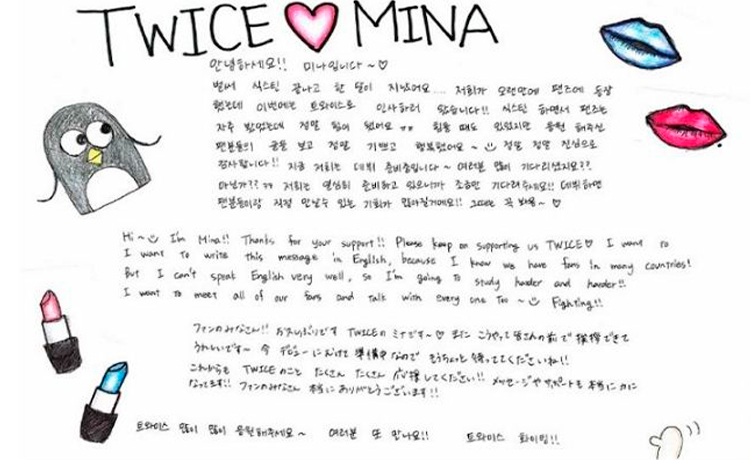 TWICE ♡ MINA
안녕하세요!! 미나입니다~♡
벌써 식스틴 끝나고 한 달이 지났어요.... 저희가 오랜만에 팬즈에 등장
했는데 이번에는 트와이스로 인사하러 왔습니다!! 식스틴 하면서 팬즈는
자주 봤었는데 정말 힘이 됐어요 ㅠㅠ 힘들 때도 있었지만 응원 해주신
팬분들의 글을 보고 정말 기쁘고 행복했어요~ 정말 정말 진심으로
감사합니다!! 지금 저희는 데뷔 준비중입니다~ 여러분 많이 기다리셨지요??
아닌가?? ㅋㅋ 저희는 열심히 준비하고 있으니까 조금만 기다려주세요!! 데뷔하면
팬분들이랑 직접 만날수 있는 기회가 많아질거에요!! 그때는 꼭 봐용~♡
Hi~ I'm Mina!! Thanks for your support!! Please keep on supporting us TWICE♡ I want to
I want to write this message in English, because I know we have fans in many countries!
But I can't speak English very well, so I'm going to study harder and harder!!
I want to meet all of our fans and talk with every one too ~ Fighting!!
ファンのみなさん!! お久しぶりです TWICEのミナです~♡ またこうやって皆さんの前で挨拶できて
うれしいです~ 今デビューにむけて準備中なので もうちょっと待っててくださいね!!
これからも TWICEのこと たくさん たくさん 応援してください!! メッセージやサポートも本当に力に
なってます!! ファンのみなさん 本当にありがとうございます!!
트와이스 많이 많이 응원해주세요~ 여러분 또 만나요!! 트와이스 화이팅!!